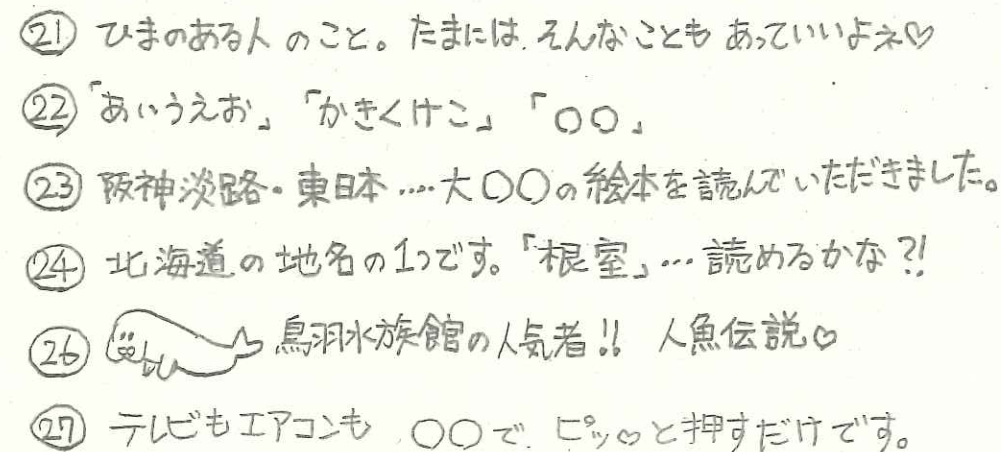 ㉑ ひまのある人のこと。たまには、そんなこともあっていいよネ♡
㉒ 「あいうえお」「かきくけこ」「○○」
㉓ 阪神淡路・東日本‥‥大○○の絵本を読んでいただきました。
㉔ 北海道の地名の1つです。「根室」…読めるかな?!
㉖ 鳥羽水族館の人気者!! 人魚伝説♡
㉗ テレビもエアコンも ○○で、ピッ♡と押すだけです。